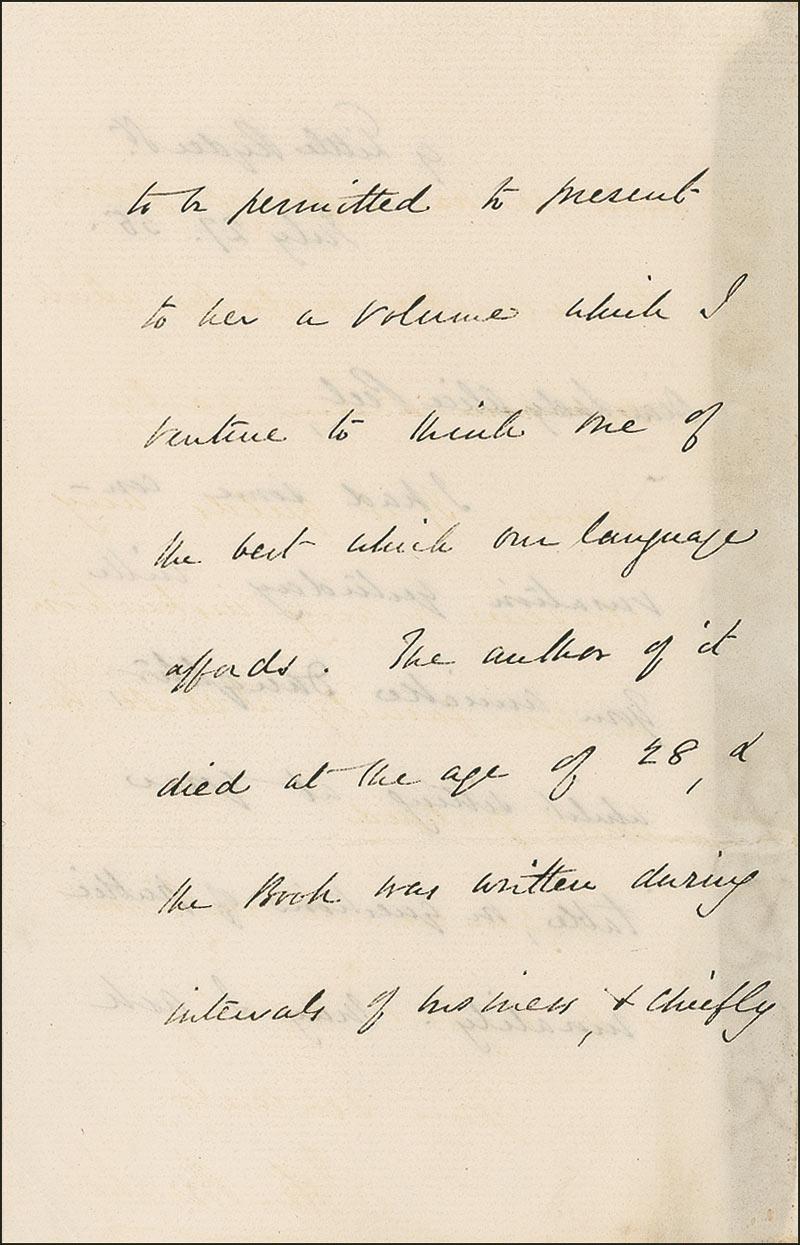 to be permitted to present
to her a volume which I
venture to think one of
the best which our language
affords. The author of it
died at the age of 28, &
the Book was written during
intervals of business, & chiefly